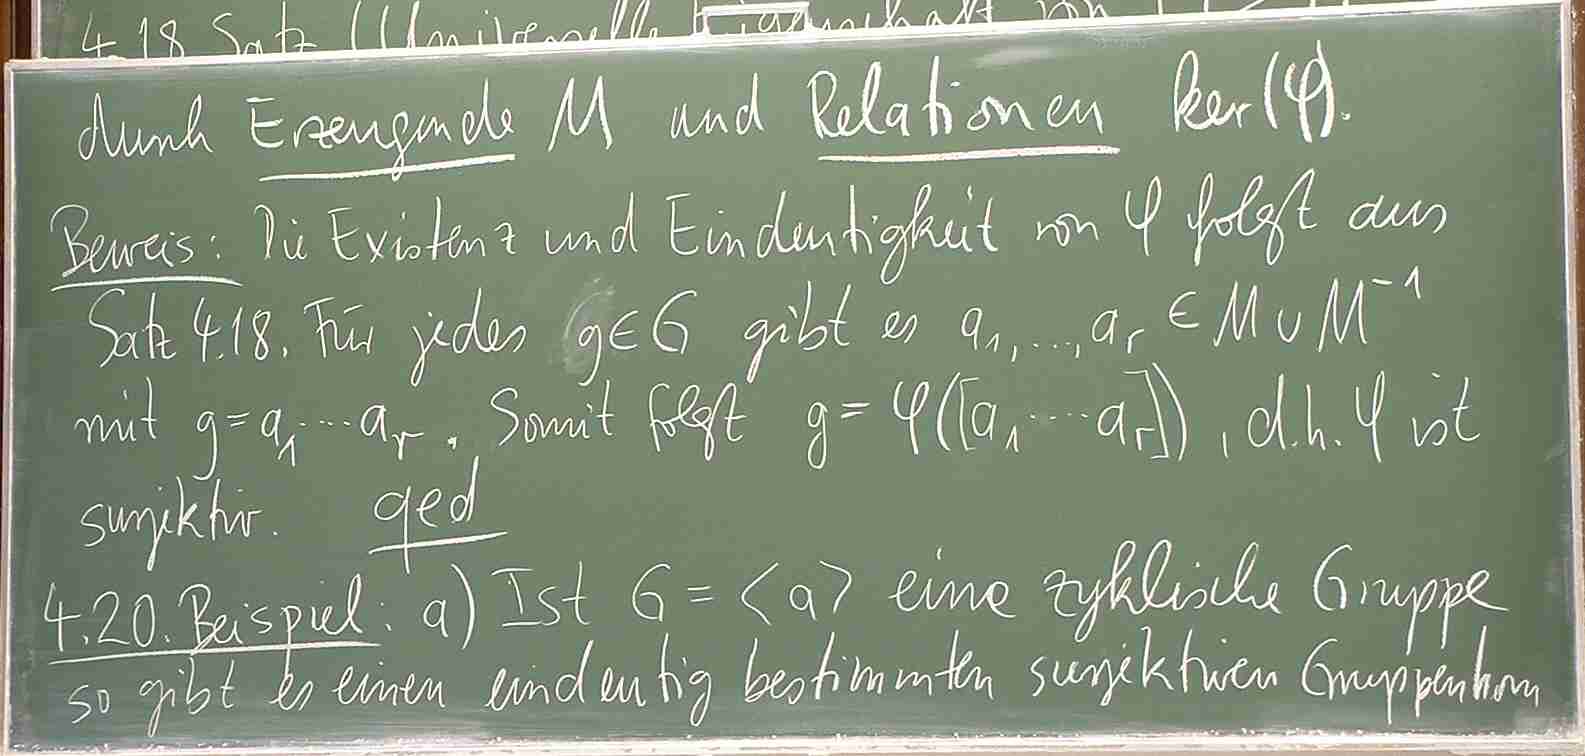 4.18 Satz (Universelle Eigenschaft von
durch Erzeugende M und Relationen ker(φ).
Beweis: Die Existenz und Eindeutigkeit von φ folgt aus
Satz 4.18. Für jedes g∈G gibt es a₁,...,aᵣ ∈ M ∪ M⁻¹
mit g=a₁···aᵣ. Somit folgt g= φ([a₁····aᵣ]), d.h. φ ist
surjektiv. qed
4.20. Beispiel: a) Ist G = <a> eine zyklische Gruppe
so gibt es einen eindeutig bestimmten surjektiven Gruppenhom